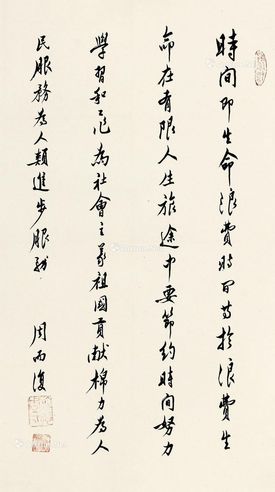 時间即生命浪费時间等於浪费生
命在有限人生旅途中要節约時间努力
學習和工作為社會主義祖國貢献棉力為人
民服務為人類進步服務
周而復